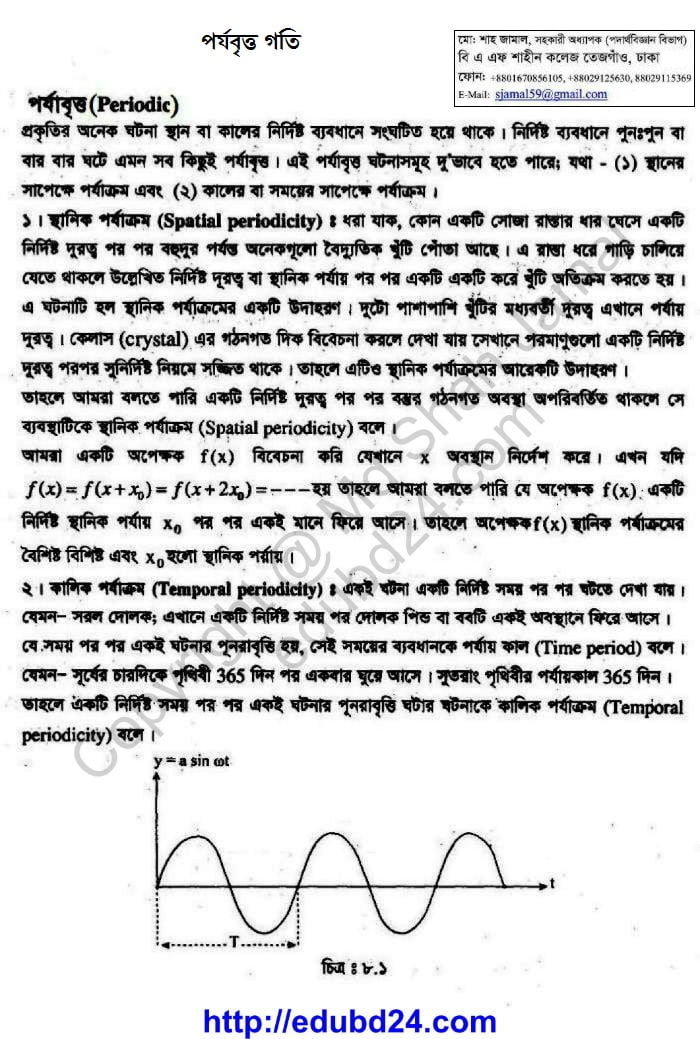 পর্যবৃত্ত গতি
মো: শাহ জামাল, সহকারী অধ্যাপক (পদার্থবিজ্ঞান বিভাগ)
বি এ এফ শাহীন কলেজ তেজগাঁও, ঢাকা
ফোন: +8801670856105, +88029125630, 88029115369
E-Mail: sjamal59@gmail.com
পর্যাবৃত্ত (Periodic)
প্রকৃতির অনেক ঘটনা স্থান বা কালের নির্দিষ্ট ব্যবধানে সংঘটিত হয়ে থাকে। নির্দিষ্ট ব্যবধানে পুনঃপুন বা
বার বার ঘটে এমন সব কিছুই পর্যাবৃত্ত। এই পর্যাবৃত্ত ঘটনাসমূহ দু'ভাবে হতে পারে; যথা - (১) স্থানের
সাপেক্ষে পর্যাক্রম এবং (২) কালের বা সময়ের সাপেক্ষে পর্যাক্রম।
১। স্থানিক পর্যাক্রম (Spatial periodicity) ঃ ধরা যাক, কোন একটি সোজা রাস্তার ধার ঘেসে একটি
নির্দিষ্ট দূরত্ব পর পর বহুদূর পর্যন্ত অনেকগুলো বৈদ্যুতিক খুঁটি পোঁতা আছে। এ রাস্তা ধরে গাড়ি চালিয়ে
যেতে থাকলে উল্লেখিত নির্দিষ্ট দূরত্ব বা স্থানিক পর্যায় পর পর একটি একটি করে খুঁটি অতিক্রম করতে হয়।
এ ঘটনাটি হল স্থানিক পর্যাক্রমের একটি উদাহরণ। দুটো পাশাপাশি খুঁটির মধ্যবর্তী দূরত্ব এখানে পর্যায়
দূরত্ব। কেলাস (crystal) এর গঠনগত দিক বিবেচনা করলে দেখা যায় সেখানে পরমাণুগুলো একটি নির্দিষ্ট
দূরত্ব পরপর সুনির্দিষ্ট নিয়মে সজ্জিত থাকে। তাহলে এটিও স্থানিক পর্যাক্রমের আরেকটি উদাহরণ।
তাহলে আমরা বলতে পারি একটি নির্দিষ্ট দূরত্ব পর পর বস্তুর গঠনগত অবস্থা অপরিবর্তিত থাকলে সে
ব্যবস্থাটিকে স্থানিক পর্যাক্রম (Spatial periodicity) বলে।
আমরা একটি অপেক্ষক f(x) বিবেচনা করি যেখানে x অবস্থান নির্দেশ করে। এখন যদি
f(x) = f(x+x₀) = f(x+2x₀) = ---- হয় তাহলে আমরা বলতে পারি যে অপেক্ষক f(x) একটি
নির্দিষ্ট স্থানিক পর্যায় x₀ পর পর একই মানে ফিরে আসে। তাহলে অপেক্ষক f(x) স্থানিক পর্যাক্রমের
বৈশিষ্ট বিশিষ্ট এবং x₀ হলো স্থানিক পর্যায়।
২। কালিক পর্যাক্রম (Temporal periodicity) ঃ একই ঘটনা একটি নির্দিষ্ট সময় পর পর ঘটতে দেখা যায়।
যেমন– সরল দোলক; এখানে একটি নির্দিষ্ট সময় পর দোলক পিন্ড বা ববটি একই অবস্থানে ফিরে আসে।
যে সময় পর পর একই ঘটনার পূনরাবৃত্তি হয়, সেই সময়ের ব্যবধানকে পর্যায় কাল (Time period) বলে।
যেমন– সূর্যের চারদিকে পৃথিবী 365 দিন পর একবার ঘুরে আসে। সুতরাং পৃথিবীর পর্যায়কাল 365 দিন।
তাহলে একটি নির্দিষ্ট সময় পর পর একই ঘটনার পূনরাবৃত্তি ঘটার ঘটনাকে কালিক পর্যাক্রম (Temporal
periodicity) বলে।
y = a sin ωt
t
T
চিত্র ঃ ৮.১
Copyright @ Md Shah Jamal
edubd24.com
http://edubd24.com